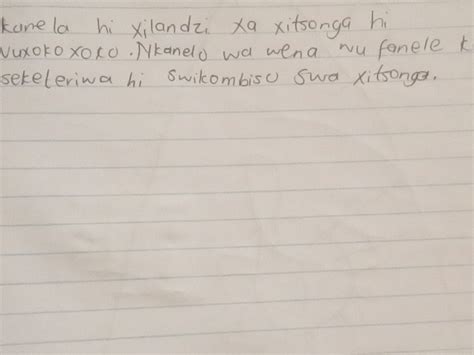 kanela hi xilandzi xa xitsonga hi
vuxokoxoko. Nkanelo wa wena wu fanele k
sekeleriwa hi swikombiso swa xitsonga.